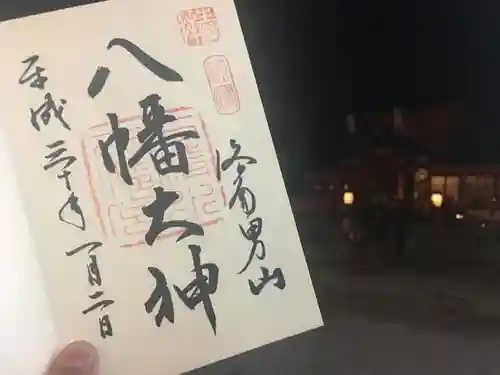 洛南男山
八幡大神
平成三十年一月二日